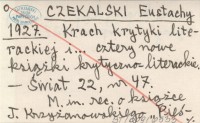 CZEKALSKI Eustachy
1927. Krach krytyki lite-
rackiej i... cztery nowe
książki krytyczno-literackie.
– Świat 22, nr 47.
M. in. rec. o książce
J. Krzyżanowskiego „Pieś-